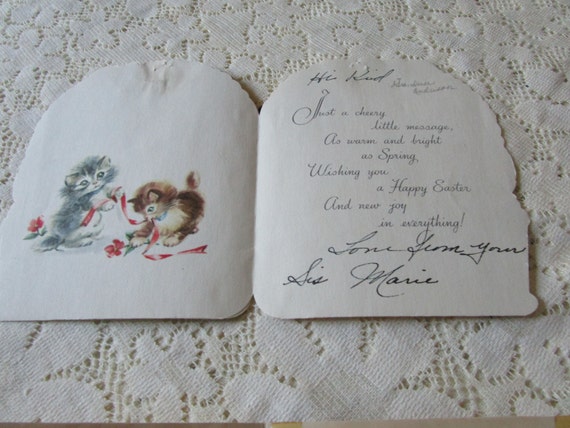 Hi Kid
Just a cheery
little message,
As warm and bright
as Spring,
Wishing you
a Happy Easter
And new joy
in everything!
Love from your
Sis Marie